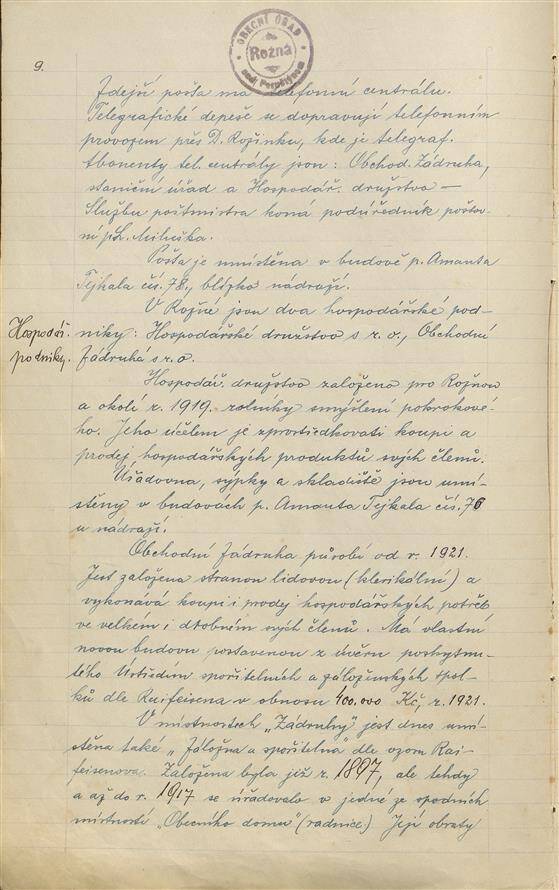 9.
OBECNÍ ÚŘAD
Rožná
nad Pernštýnem
Zdejší pošta má telefonní centrálu.
Telegrafické depeše se dopravují telefonním
provozem přes D. Rožínku, kde je telegraf.
Abonenty tel. centrály jsou: Obchod. Zádruha,
staniční úřad a Hospodář. družstvo —
Službu poštmistra koná podúředník poštov-
ní Miluška.
Pošta je umístěna v budově p. Amanta
Tejkala čís. 78, blízko nádraží.
V Rožné jsou dva hospodářské pod-
Hospodář.
podniky.
niky: Hospodářské družstvo s r. o., Obchodní
Zádruha s r. o.
Hospodář. družstvo založeno pro Rožnou
a okolí r. 1919. rolníky smýšlení pokrokové-
ho. Jeho účelem je zprostředkovati koupi a
prodej hospodářských produktů svých členů.
Úřadovna, sýpky a skladiště jsou umí-
stěny v budovách p. Amanta Tejkala čís. 76
u nádraží.
Obchodní Zádruha působí od r. 1921.
Jest založena stranou lidovou (klerikální) a
vykonává koupi i prodej hospodářských potřeb
ve velkém i drobném svých členů. Má vlastní
novou budovu postavenou z úvěru poskytnu-
tého Ústředím spořitelních a záloženských spol-
ků dle Raifeisena v obnosu 400.000 Kč, r. 1921.
V místnostech „Zádruhy" jest dnes umí-
stěna také „Záložna a spořitelna" dle vzoru Rai-
feisenova. Založena byla již r. 1897, ale tehdy
a až do r. 1917 se úřadovalo v jedné ze spodních
místností „Obecního domu" (radnice.) Její obraty